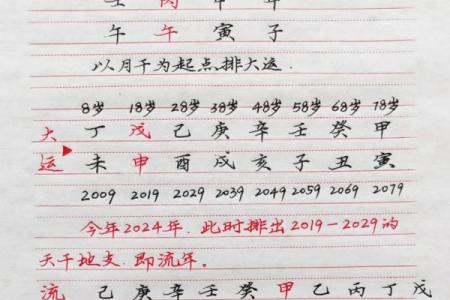 午 午 寅 子
以月干为起点排大运.
8岁 18岁 28岁 38岁 48岁 58岁 68岁 78岁
大 丁 戊 己 庚 辛 壬 癸 甲
运 未 申 酉 戌 亥 子 丑 寅
2009 2019 2029 2039 2049 2059 2069 2079
今年2024年.此时排出2019-2029的
天干地支.即流年。
流 己 庚 辛 壬 癸 甲 乙 丙 丁 戊